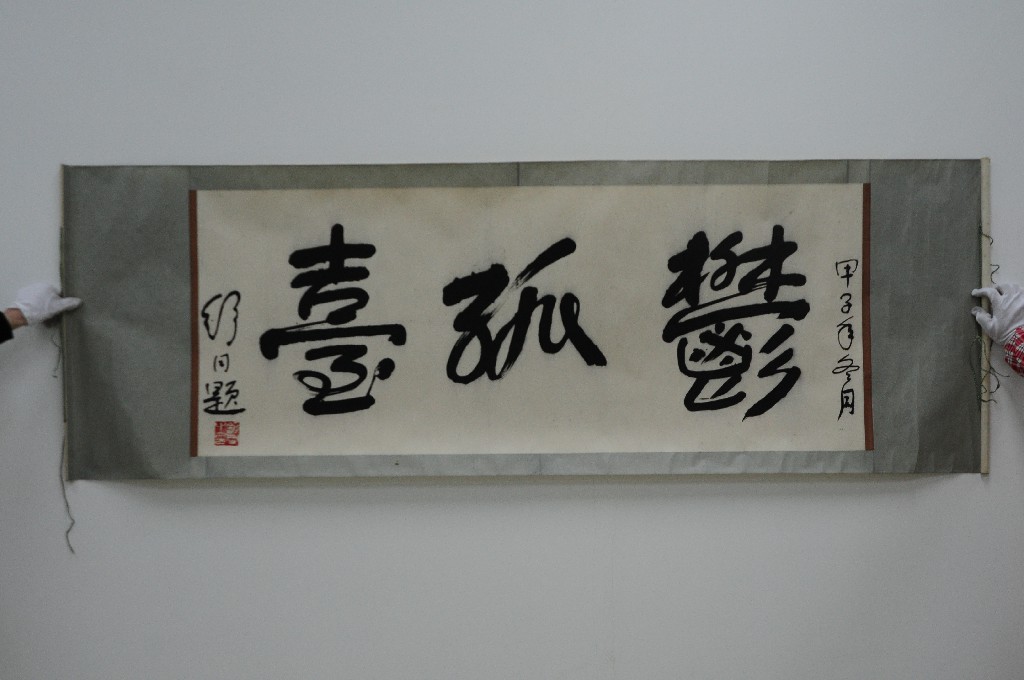 甲子年冬月
鬱孤臺
舒同題